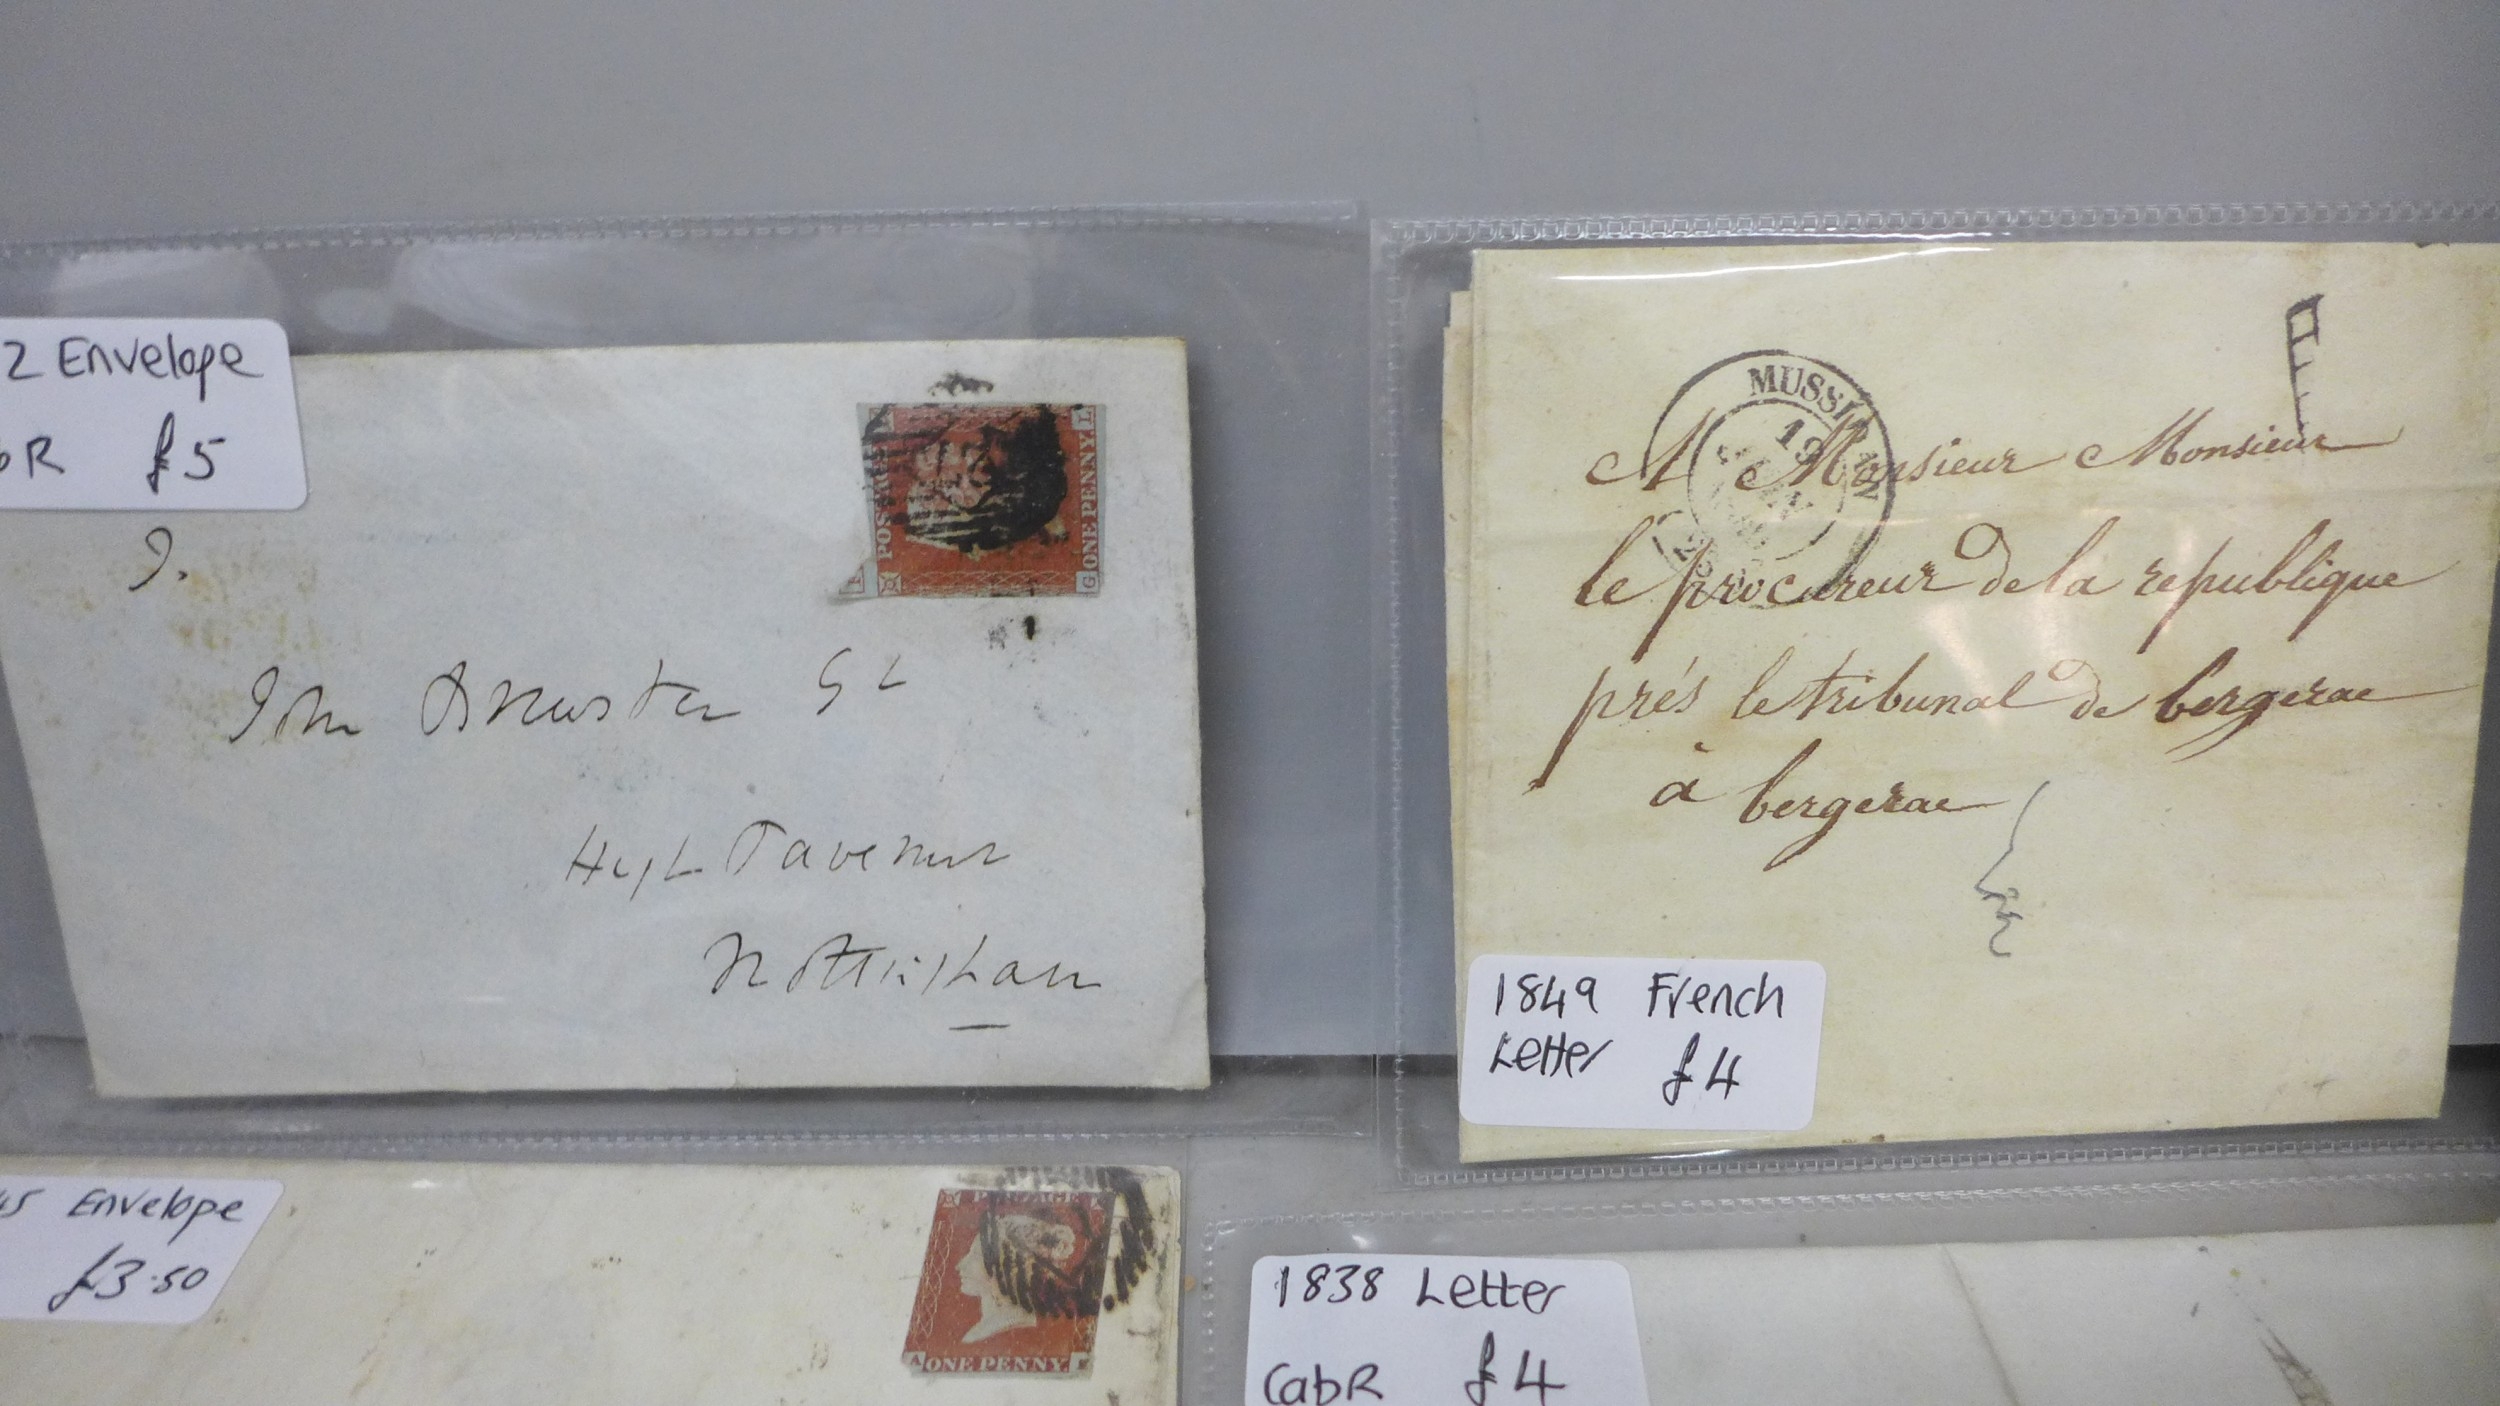 2 Envelope
R £5
POSTAGE
ONE PENNY
G L
J.
John Brewster
High Pavement
Nottingham
MUSSIDAN
19
JUIN
A Monsieur Monsieur
le procureur de la republique
prés le tribunal de bergerac
à bergerac
1849 French
Letter £4
45 Envelope
£3.50
POSTAGE
A ONE PENNY
1838 Letter
CabR £4